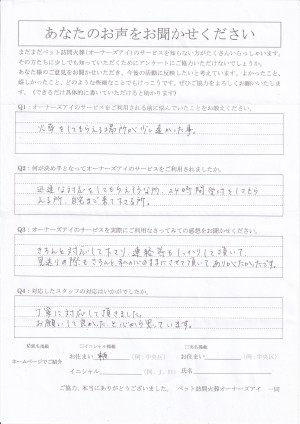 あなたのお声をお聞かせください
まだまだペット訪問火葬(オーナーズアイ)のサービスを知らない方がたくさんいらっしゃいます。
その方たちにも少しでも知っていただくためにアンケートにご協力いただけないでしょうか。
あなた様のご意見をお聞かせいただき、今後の活動に反映したいと考えています。よかったこと、
嬉しかったこと、どのような些細なことでもけっこうです。ぜひご協力をよろしくお願いいたします。
(できるだけ具体的に書いていただけると助かります。)
Q1:オーナーズアイのサービスをご利用される前に悩んでいたことをお教えください。
火葬をしてもらえる場所が少し遠かった事。
Q2:何が決め手となってオーナーズアイのサービスをご利用されましたか。
迅速な対応をしてもらえそうな所、24時間受付をしてもら
える所、自宅まで来て下さる所。
Q3:オーナーズアイのサービスを実際にご利用なさってみての感想をお聞かせください。
きちんと対応して下さり、連絡等もしっかりして頂いて、
見送りの際もきちんと私の心のままにさせて頂いてありがたかったです。
Q4:対応したスタッフの対応はいかがでしたか。
丁寧に対応して頂きました。
お願いして良かった、と心から思っています。
ホームページでご紹介
イニシャル
お住まい
(例:中央区)
お住まい
(例:中央区)
氏名
ご協力、本当にありがとうございました。 ペット訪問火葬オーナーズアイ 一同